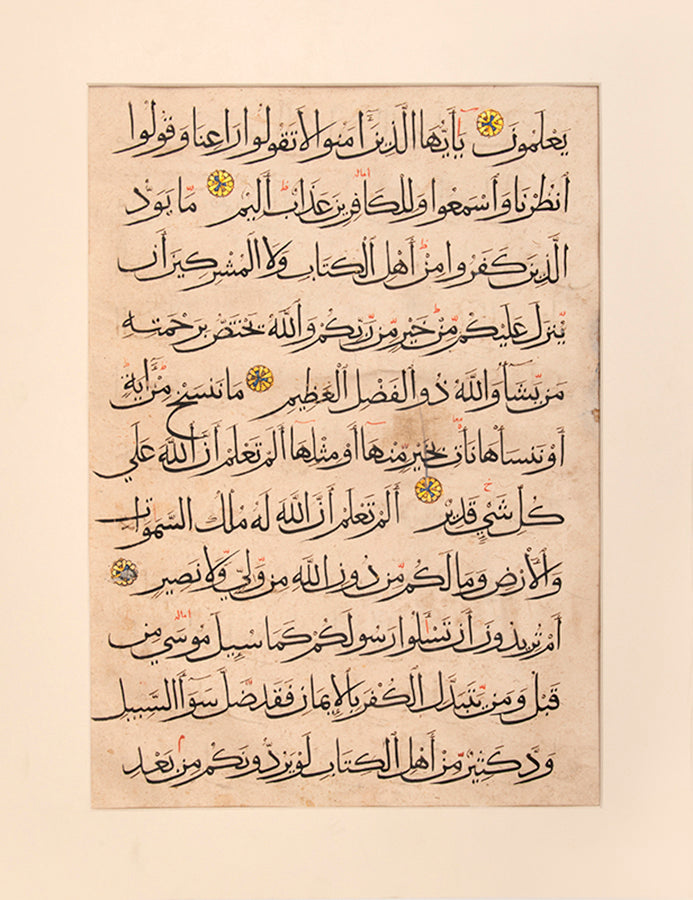 يَعْلَمُونَ يَأَيُّهَا الَّذِينَ آمَنُوا لَا تَقُولُوا رَاعِنَا وَقُولُوا
اماله
ٱنْظُرْنَا وَٱسْمَعُوا وَلِلْكَافِرِينَ عَذَابٌ أَلِيمٌ مَا يَوَدُّ
الَّذِينَ كَفَرُوا مِنْ أَهْلِ ٱلْكِتَابِ وَلَا الْمُشْرِكِينَ أَن
يُنْزَلَ عَلَيْكُمْ مِنْ خَيْرٍ مِنْ رَبِّكُمْ وَٱللَّهُ يَخْتَصُّ بِرَحْمَتِهِ
مَن يَشَآءُ وَاللَّهُ ذُو ٱلْفَضْلِ الْعَظِيمِ مَا نَنسَخْ مِنْ آيَةٍ
أَوْ نَنسَأْهَا نَأْتِ بِخَيْرٍ مِنْهَا أَوْ مِثْلِهَا أَلَمْ تَعْلَمْ أَنَّ ٱللَّهَ عَلَى
كُلِّ شَيْءٍ قَدِيرٌ أَلَمْ تَعْلَمْ أَنَّ اللَّهَ لَهُ مُلْكُ السَّمَوَاتِ
وَالْأَرْضِ وَمَا لَكُمْ مِن دُونِ اللَّهِ مِن وَلِيٍّ وَلَا نَصِيرٍ
اماله
أَمْ تُرِيدُونَ أَن تَسْأَلُوا رَسُولَكُمْ كَمَا سُئِلَ مُوسَى مِن
قَبْلُ وَمَن يَتَبَدَّلِ ٱلْكُفْرَ بِالْإِيمَانِ فَقَدْ ضَلَّ سَوَآءَ السَّبِيلِ
وَدَّ كَثِيرٌ مِنْ أَهْلِ ٱلْكِتَابِ لَوْ يَرُدُّونَكُمْ مِن بَعْدِ